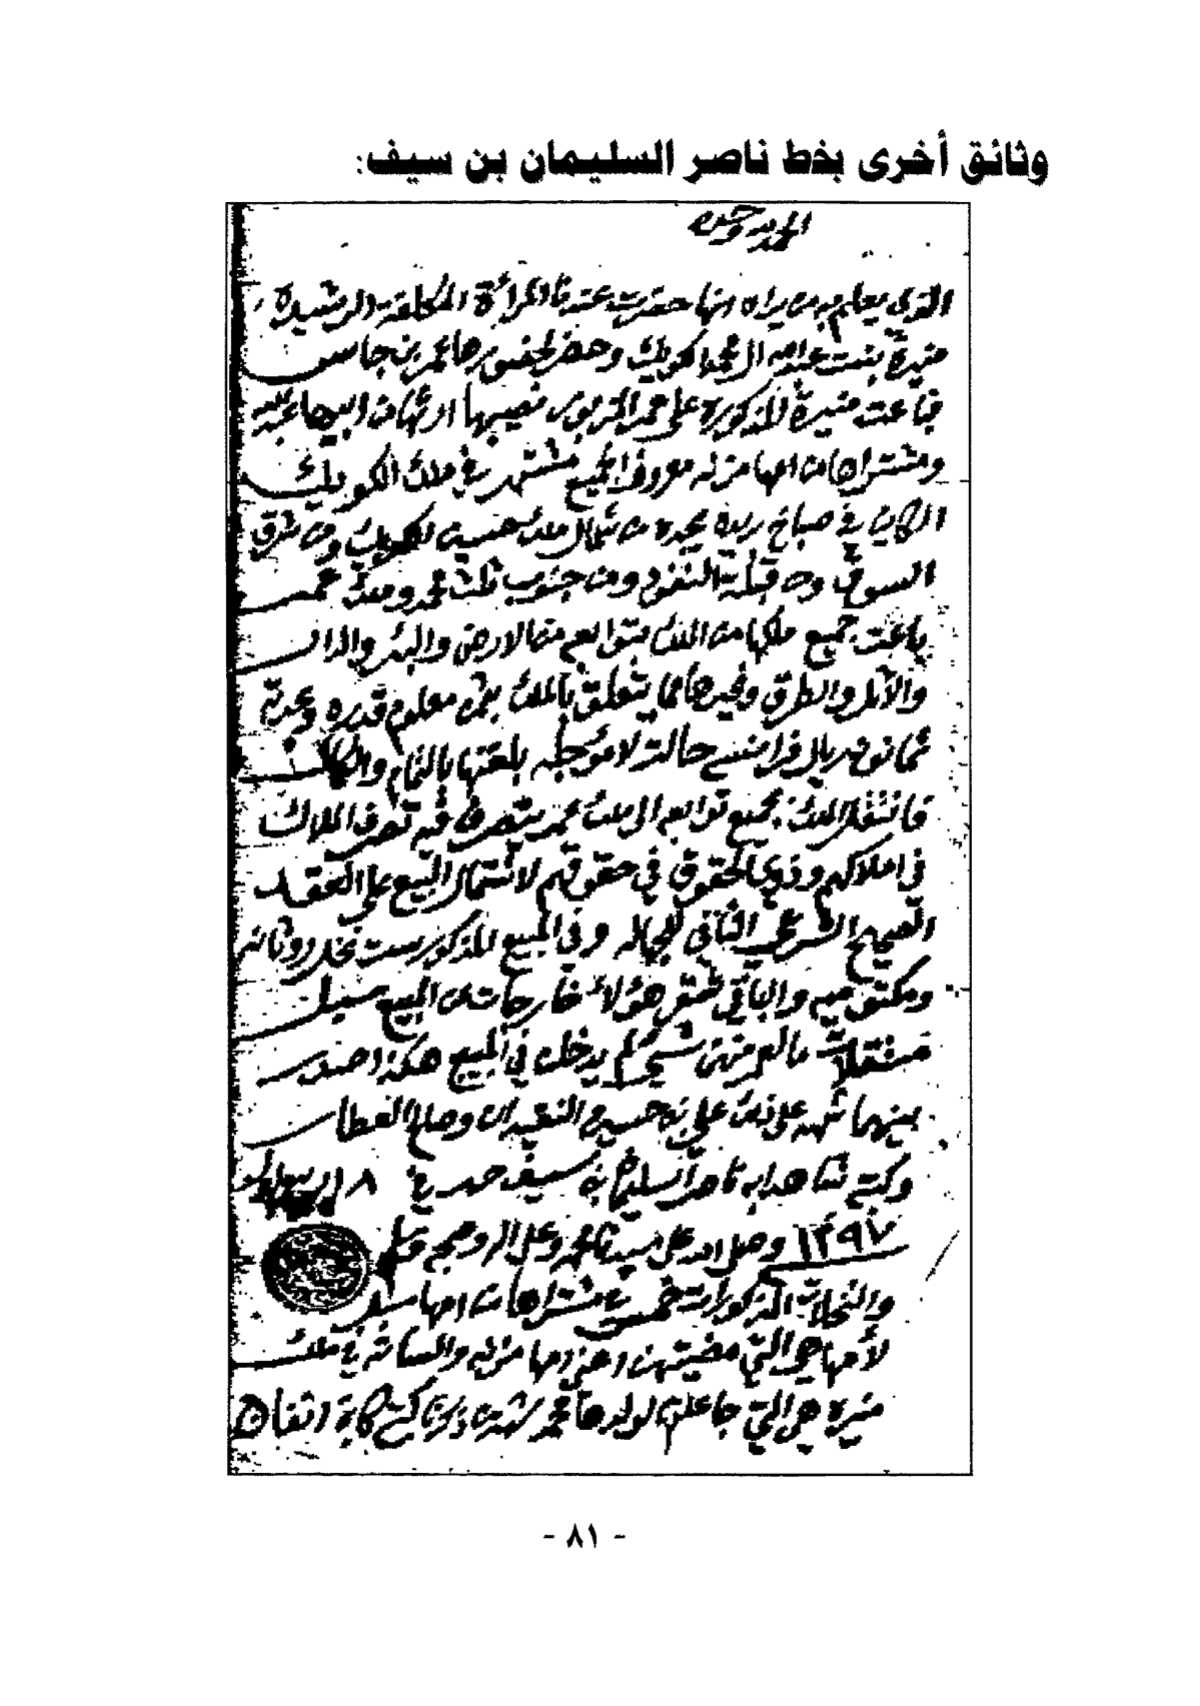 وثائق أخرى بخط ناصر السليمان بن سيف:
الحمد لله وحده
الذي يعلم به من يراه انها حضرت عندنا المرائة المكلفة الرشيدة
منيرة بنت عبدالله ال محمد الكويك وحضر لحضورها عمر بن جاسر
فباعت منيرة المذكورة على عمر المزبور نصيبها ارثها من ابيها عبدالله
ومشتراها من امها مزنه معروف الجميع مشتهر في ملك الكويك
الكاين في صباخ بريدة يحده من شمال ملك حسين الكويك ومن شرق
السوق ومن قبلة النفود ومن جنوب ثلث محمد وملك عمر
باعت جميع ملكها من الملك بتوابعه من الارض والبئر والدار
والاثل والطرق وغيرها مما يتعلق بالملك بثمن معلوم قدره وعدته
ثمانون ريال فرانسي حالت لا مؤجله بلغتها بالتمام والكمال
فانتقل الملك بجميع توابعه الى ملك عمر يتصرف فيه تصرف الملاك
في املاكهم وذوي الحقوق في حقوقهم لاشتمال البيع على العقد
الصحيح الشرعي النافي للجهاله وفي المبيع المذكور ست نخل روثانه
ومكتوميه والباقي شقر هؤلاء خارجات من المبيع سبل
مستقلات ما لعمر منهن شي لم يدخلن في المبيع هكذا صدر
بينهما شهد على ذلك علي بن حسين النقيدان وصالح العطار
وكتبه شاهدا به ناصر السليمان بن سيف حرر في ١٨ ربيع
١٢٩٧ وصلى الله على سيدنا محمد وعلى اله وصحبه وسلم
والنخلات المذكورات خمس من مشتراها من امها سبل
لأمها هي التي اعني امها مزنه والسادسة في ملك
منيره هي التي جاعلتها لولدها محمد شهد بذلك كتبه كاتبه
- ٨١ -